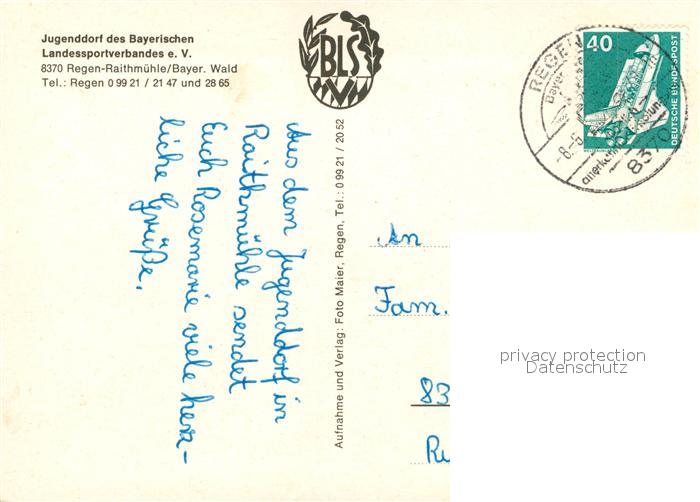 Jugenddorf des Bayerischen
Landessportverbandes e. V.
8370 Regen-Raithmühle/Bayer. Wald
Tel.: Regen 0 99 21 / 21 47 und 28 65
BLS
V
REGEN
40
DEUTSCHE BUNDESPOST
8370
Aus dem Jugenddorf in
Raithmühle sendet
Euch Rosemarie viele herz-
liche Grüße.
Aufnahme und Verlag: Foto Maier, Regen, Tel.: 0 99 21 / 20 52
An
Fam.
83
privacy protection
Datenschutz